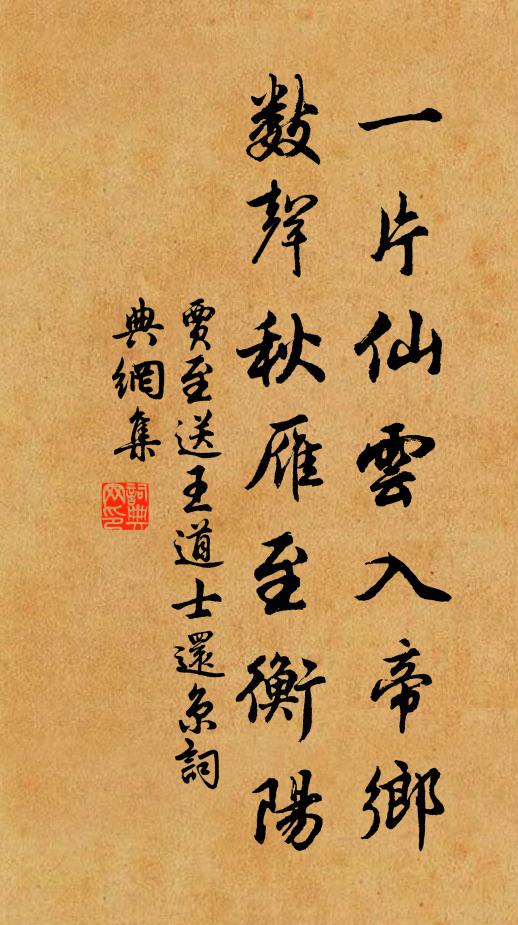 一片仙雲入帝鄉
數聲秋雁至衡陽
賈至送王道士還京詞
典網集
詞典
网印